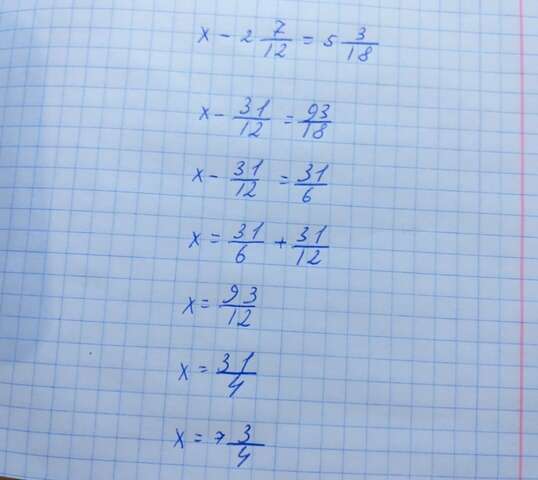 x - 2 7/12 = 5 3/18
x - 31/12 = 93/18
x - 31/12 = 31/6
x = 31/6 + 31/12
x = 93/12
x = 31/4
x = 7 3/4